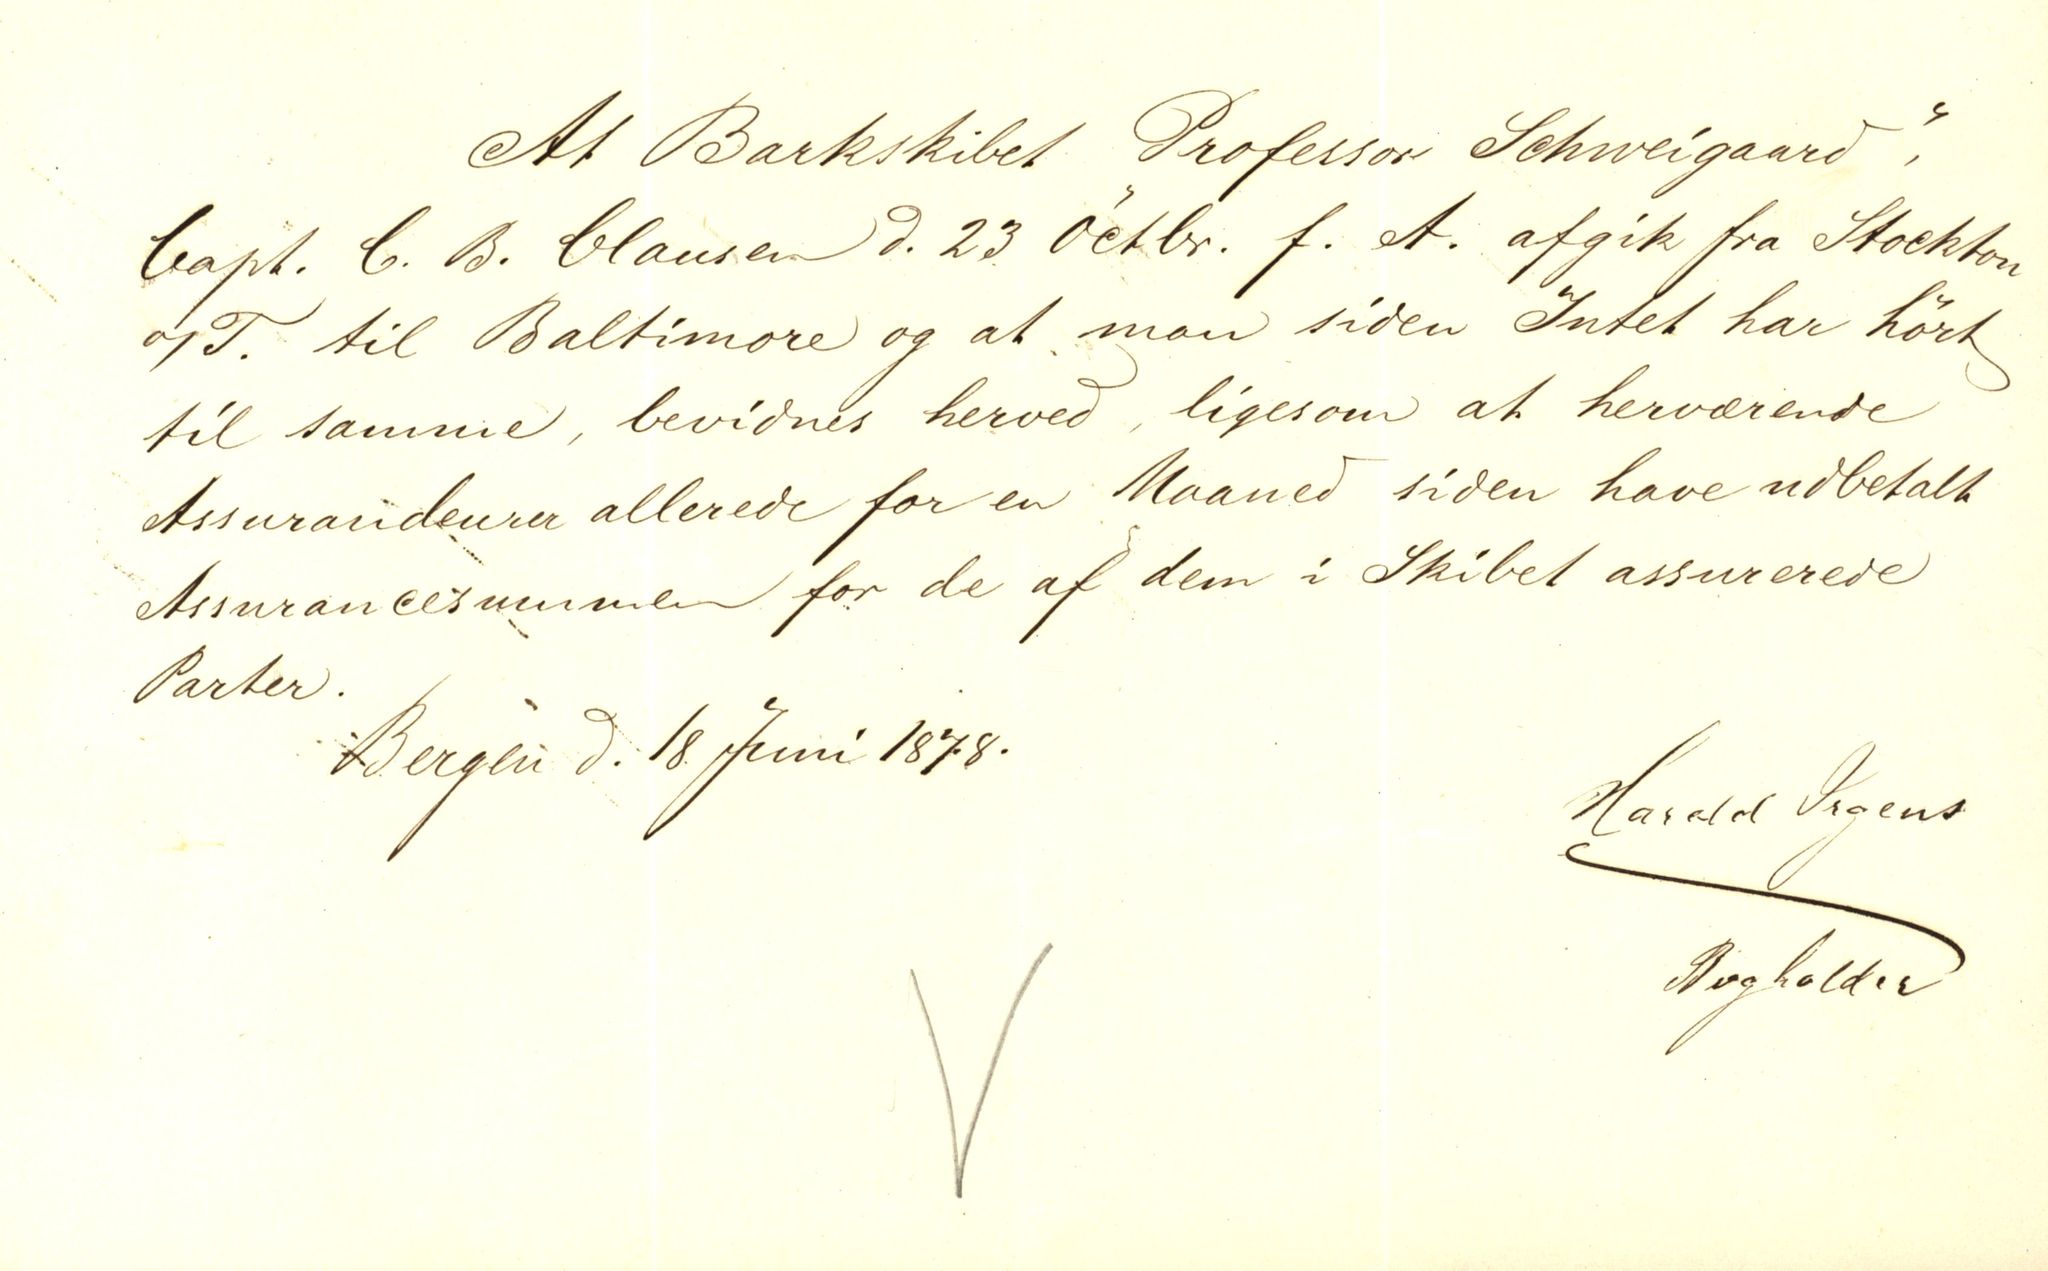 At Barkskibet "Professor Schweigaard",
Capt. C. B. Clausen d. 23 Octbr. f. A. afgik fra Stockton
o/T. til Baltimore og at man siden Intet har hört
til samme, bevidnes herved, ligesom at herværende
Assurandeurer allerede for en Maaned siden have udbetalt
Assurancesummen for de af dem i Skibet assurerede
Parter.
Bergen d. 18 Juni 1878.
Harald Irgens
Bogholder